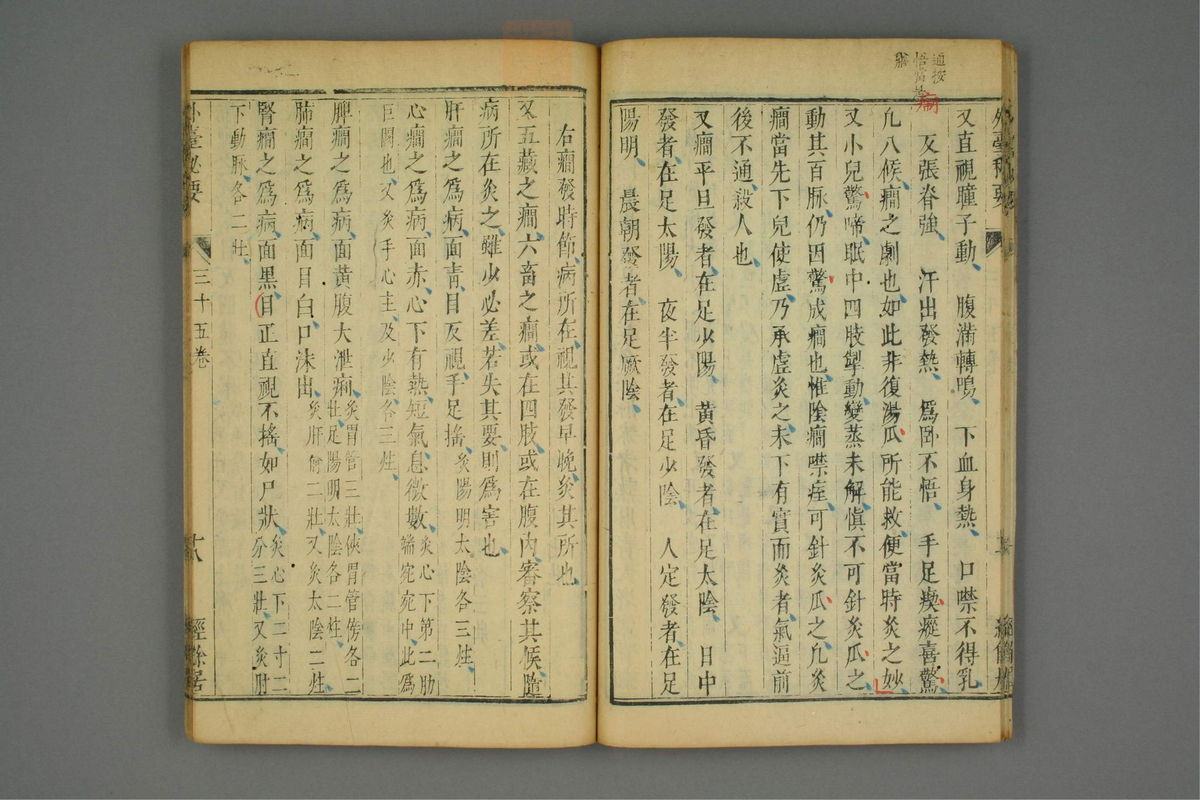 外臺秘要
又直視瞳子動 腹滿轉鳴 下血身熱 口噤不得乳
反張脊強 汗出發熱 爲卧不悟 手足瘈瘲喜驚
凢八候癎之劇也如此非復湯瓜所能救便當時灸之妙
又小兒驚啼眠中四肢掣動變蒸未解慎不可針灸瓜之
動其百脉仍因驚成癎也惟陰癎噤痓可針灸瓜之凢灸
癎當先下兒使虛乃承虛灸之未下有實而灸者氣逼前
後不通殺人也
又癎平旦發者在足少陽 黃昏發者在足太陰 日中
發者在足太陽 夜半發者在足少陰 人定發者在足
陽明 晨朝發者在足厥陰
右癎發時節病所在視其發早晚灸其所也
又五藏之癎六畜之癎或在四肢或在腹內審察其候隨
病所在灸之雖少必差若失其要則爲害也
肝癎之爲病面靑目反視手足搖灸陽明太陰各三炷
心癎之爲病面赤心下有熱短氣息微數灸心下第二肋端宛宛中此爲
巨闕也又灸手心主及少陰各三炷
脾癎之爲病面黃腹大泄痢灸胃管三壯俠胃管傍各二壯足陽明太陰各二炷
肺癎之爲病面目白口沫出灸肝俞二壯又灸太陰二炷
腎癎之爲病面黑目正直視不搖如尸狀灸心下二寸二分三壯又灸肘
下動脉各二壯
外臺秘要 三十五卷 十八 經餘居